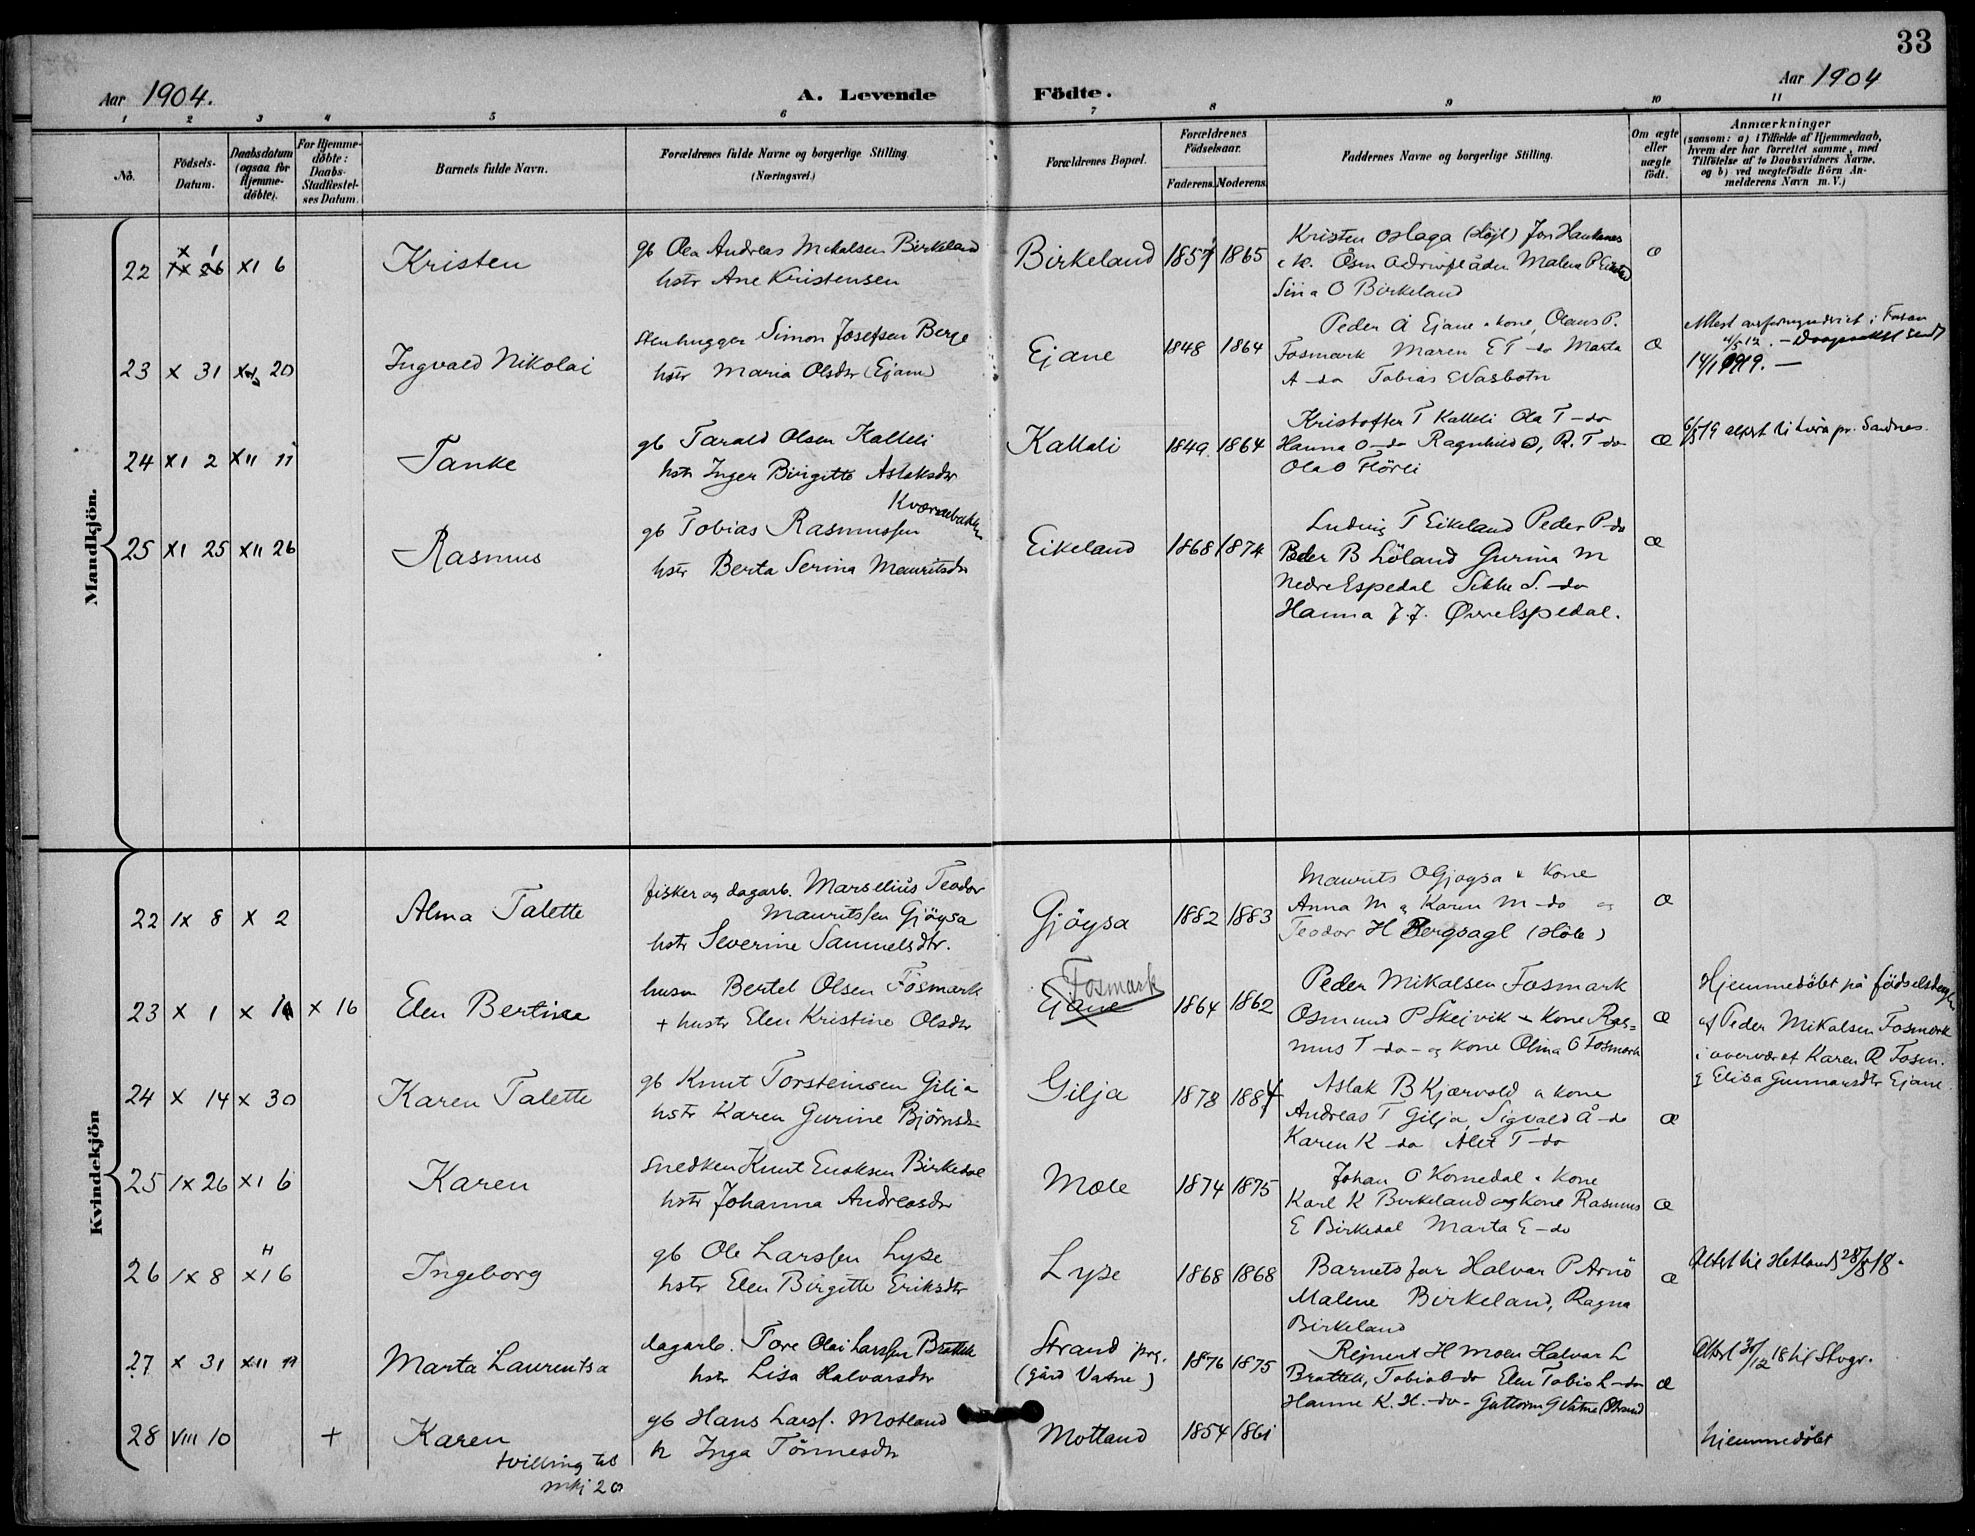 33
Aar 1904.
A. Levende Födte.
Aar 1904
1 2 3 4 5 6 7 8 9 10 11
No.
Födsels-Datum.
Daabsdatum (ogsaa for Hjemme-döbte).
For Hjemme-döbte: Daabs-Stadfæstel-ses Datum.
Barnets fulde Navn.
Forældrenes fulde Navne og borgerlige Stilling.
(Næringsvei.)
Forældrenes Bopæl.
Forældrenes Födselsaar.
Faderens. Moderens.
Faddernes Navne og borgerlige Stilling.
Om ægte eller uægte födt.
Anmærkninger
(saasom: a) i Tilfælde af Hjemmedaab,
hvem der har forrettet samme, med
Tilföielse af to Daabsvidners Navne,
og b) ved uægtefödte Börn An-
melderens Navn m. V.)
Mandkjön.
22 X 1 XI 6 Kristen
gb Ola Andreas Mikalsen Birkeland
hstr Ane Kristensen
Birkeland 1857 1865
Kristen Oslaga (Højl) Jon
Malena P
Sina O Birkeland
23 X 31 20 Ingvald Nikolai
Stenhugger Simon Josefsen Berge
hstr Maria Olsdtr (Ejane)
Ejane 1848 1864 æ
Peder Å Ejane & kone, Olaus P.
Fosmark Maren E T - do Marta
A - do Tobias E Vasbotn
Attest i
14/1 1919. —
24 XI 2 XII 11 Tanke
gb Tarald Olsen Kalleli
hstr Inger Birgitte Aslaksdtr
Kalleli 1849. 1864 æ
Kristoffer T Kalleli Ola T - do
Hanna O - do Ragnhild O, R. T - do
Ola O Flörli
6/5 19 pr. Sandnes.
25 XI 25 XII 26 Rasmus
Kværnebakken
gb Tobias Rasmussen
hstr Berta Serina Mauritsdtr
Eikeland 1868 1874 æ
Ludvig T Eikeland Peder P - do
Peder B Löland Gurina M
Nedre Espedal Sikke S. - do
Hanna J. J. Øvre Espedal.
Kvindekjön
22 IX 8 X 2 Alma Talette
fisker og dagarb. Marselius Teodor
Mauritssen Gjöysa
hstr Severine Samuelsdtr.
Gjöysa 1882 1883 æ
Maurits O Gjøysa & Kone
Anna M & Karen M - do og
Teodor H Bergsagl (Höle)
23 X 1 X X 16 Elen Bertine
husm Bertel Olsen Fosmark
+ hustr Elen Kristine Olsdtr
Fosmark
Ejane 1864 1862 æ
Peder Mikalsen Fosmark
Osmund P Skejvik & Kone Ras=
mus T - do - og Kone Olina O Fosmark
Hjemmedöbt på födselsdagen
af Peder Mikalsen Fosmark
i overvær af Karen R Fosm.
& Elisa Gunnarsdtr Ejane.
24 X 14 X 30 Karen Talette
gb Knut Torsteinsen Gilja
hstr Karen Gurine Björnsdtr
Gilja 1878 1884 æ
Aslak B Kjærvold & kone
Andreas T Gilja, Sigvald Å - do
Karen K - do Alet T - do
25 IX 26 XI 6 Karen
Snedker Knut Enoksen Birkedal
hstr Johanna Andreasdtr
Mæle 1874 1875 æ
Johan O Kornedal & Kone
Karl K Birkeland og Kone Rasmus
E Birkedal Marta E - do
26 IX 8 XI 6 Ingeborg
gb Ole Larssen Lyse
hstr Elen Birgitte Eriksdtr
Lyse 1868 1868 æ
Barnets far Halvar P Arnö
Malene Birkeland, Ragna
Birkeland
Attest til Hetland 28/8 18.
27 X 31 XII Marta Laurentsa
dagarb. Tore Olai Larssen Brattek
hstr Lisa Halvarsdtr
Strand prg.
(gård Vatne) 1876 1875 æ
Rejnert H Moen Halvar L
Brattek, Tobias - do Elen Tobia L - do
Hanne K. H. - do - Guttorm G Vatne (Strand
Attest 30/12 18 til Stvgr.
28 VIII 10 + Karen
tvilling til
mkj 20
gb Hans Larss. Motland
h Inga Tönnesdtr
Motland 1854 1861
hjemmedöbt